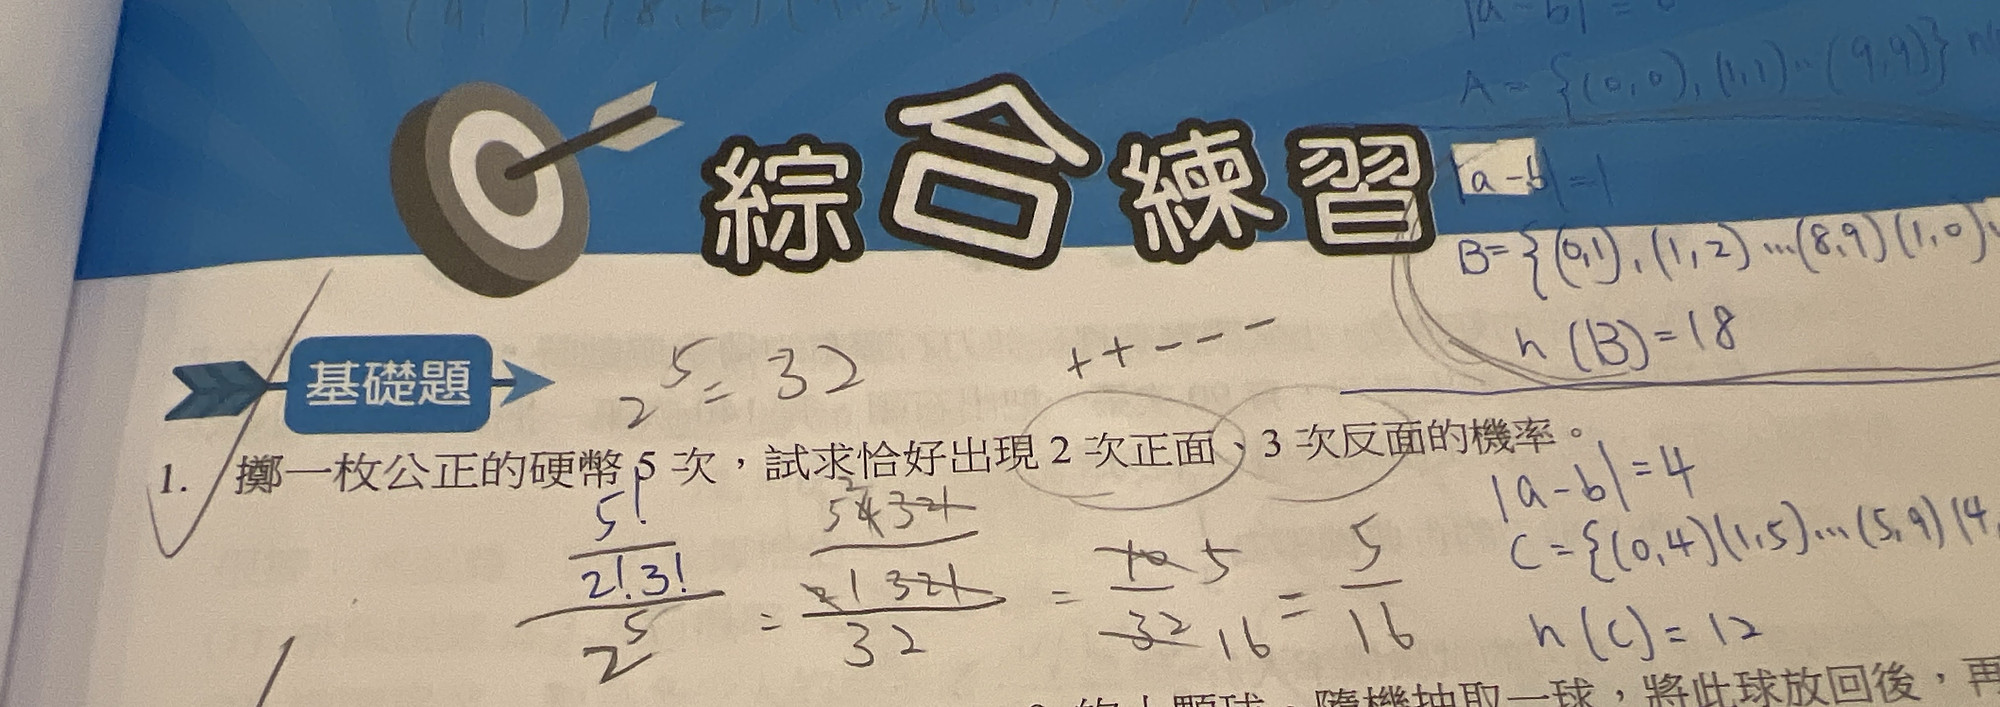 |a-b|=
A={(0,0),(1,1)…(9,9)}
綜合練習
|a-b|=1
B={(0,1),(1,2)…(8,9)(1,0)
n(B)=18
基礎題
2^5=32
++---
1. 擲一枚公正的硬幣5次,試求恰好出現2次正面、3次反面的機率。
5!/(2!3!)/2^5 = 54321/21321/32 = 10/32 5/16 = 5/16
|a-b|=4
C={(0,4)(1,5)…(5,9)(4,
n(C)=12
顆球,隨機抽取一球,將此球放回後,再